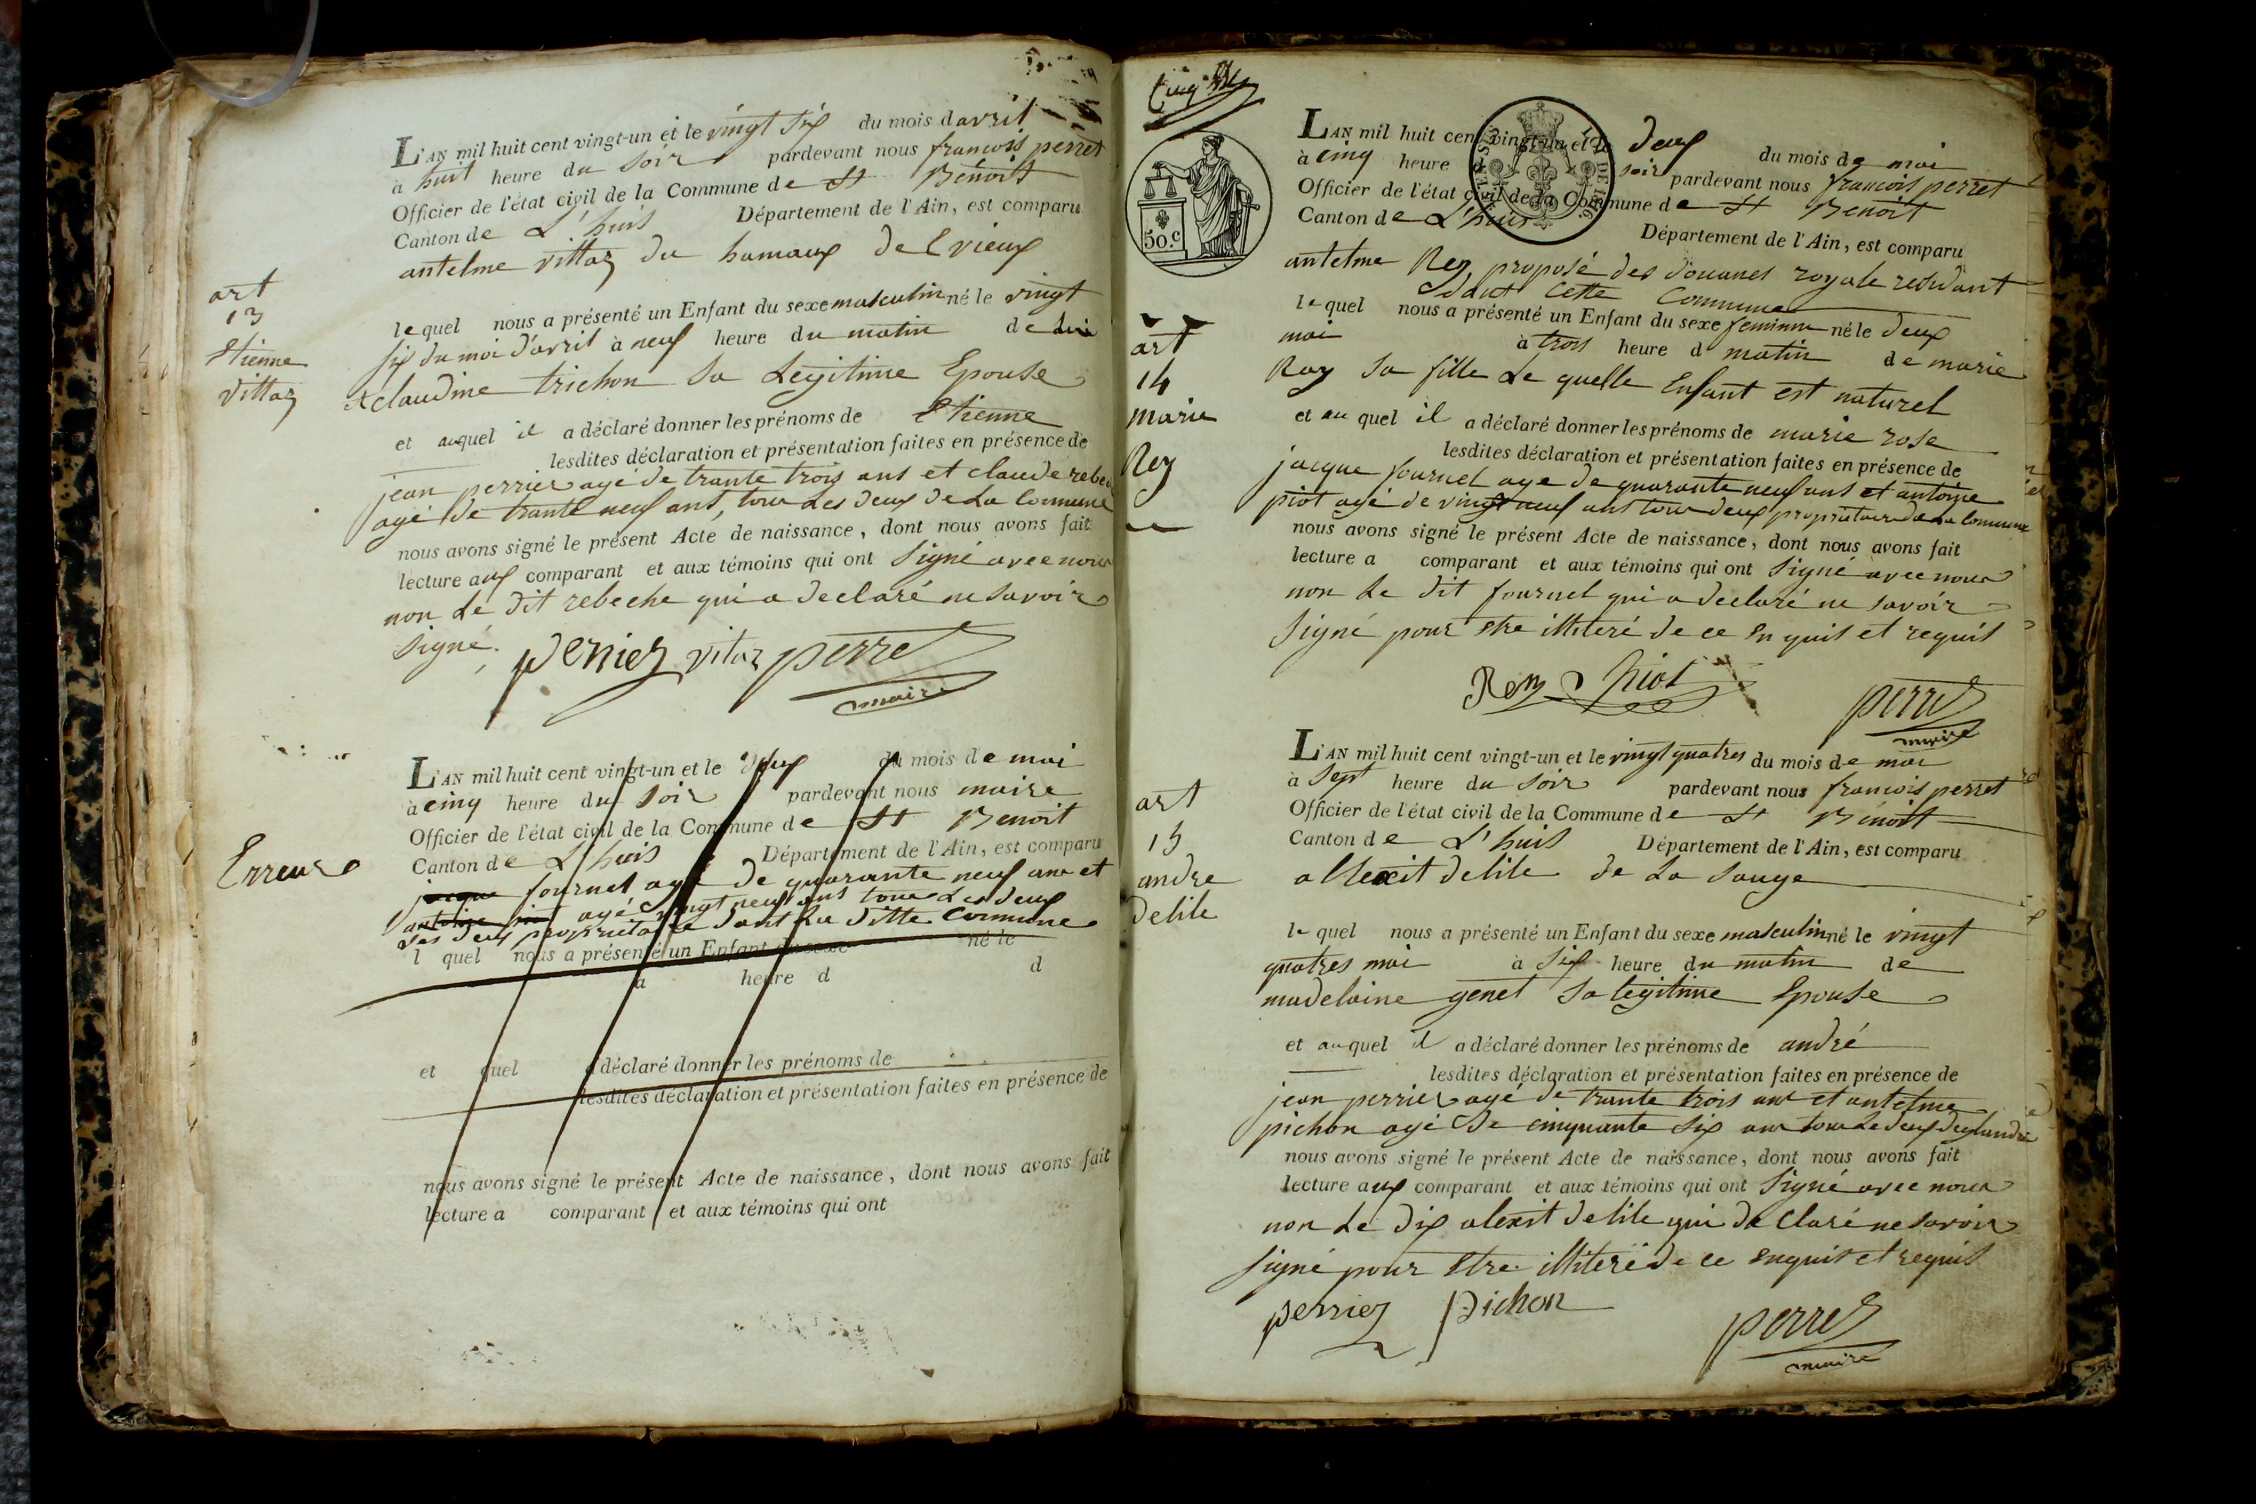 L'AN mil huit cent vingt-un et le vingt six du mois d avril
à huit heure du soir pardevant nous francois perret
Officier de l'état civil de la Commune de St Benoit
Canton de L'huis Département de l'Ain, est comparu
antelme vittoz du hamaux delvieux
le quel nous a présenté un Enfant du sexe masculin né le vingt
six du moi d'avril à neuf heure du matin de
et claudine trichon sa Legitime Epouse
et auquel il a déclaré donner les prénoms de Etienne
lesdites déclaration et présentation faites en présence de
jean perrier agé de trante trois ans et claude rebec
agé de trante neuf ans, tous Les deux de La Commune
nous avons signé le présent Acte de naissance, dont nous avons fait
lecture aux comparant et aux témoins qui ont Signé avec nous
non Le dit rebeche qui a declaré ne savoir
signé.
perrier vitoz perret
maire
art
13
Etienne
vittoz
L'AN mil huit cent vingt-un et le deux du mois de mai
à cinq heure du soir pardevant nous maire
Officier de l'état civil de la Commune de St Benoit
Canton de L'huis Département de l'Ain, est comparu
jacque fournel agé de quarante neuf ans et
antoine piot agé vingt neuf ans tous Les deux
Les deux propriétaire dant La ditte Commune
l quel nous a présenté un Enfant du sexe né le
à heure d d
et quel a déclaré donner les prénoms de
lesdites déclaration et présentation faites en présence de
nous avons signé le présent Acte de naissance, dont nous avons fait
lecture a comparant et aux témoins qui ont
Erreur
Cinq
50 c
L'AN mil huit cent vingt-un et le deux du mois de mai
à cinq heure soir pardevant nous francois perret
Officier de l'état civil de la Commune de St Benoit
Canton de L'huis Département de l'Ain, est comparu
antelme Rey proposé des douanes royale residant
dant Cette Commune
le quel nous a présenté un Enfant du sexe feminin né le deux
mai à trois heure d matin de marie
Ray sa fille Le quelle Enfant est naturel
et au quel il a déclaré donner les prénoms de marie rose
lesdites déclaration et présentation faites en présence de
jacque fournel age de quarante neuf ans et antoine
piot agé de vingt neuf ans tous deux propriétaire de La Commune
nous avons signé le présent Acte de naissance, dont nous avons fait
lecture a comparant et aux témoins qui ont Signé avec nous
non Le dit fournel qui a declaré ne savoir
Signé pour Etre illiteré de ce Enquis et requis
Rey Piot
perret
maire
art
14
marie
Rey
L'AN mil huit cent vingt-un et le vingt quatres du mois de mai
à Sept heure du soir pardevant nous francois perret
Officier de l'état civil de la Commune de St Benoit
Canton de L'huis Département de l'Ain, est comparu
allexit delile de La Sauge
le quel nous a présenté un Enfant du sexe masculin né le vingt
quatres mai à Six heure du matin de
madelaine genet sa legitime Epouse
et auquel il a déclaré donner les prénoms de andré
lesdites déclaration et présentation faites en présence de
jean perrier agé de trante trois ans et antelme
pichon agé de cinquante six ans tous Le deux
nous avons signé le présent Acte de naissance, dont nous avons fait
lecture aux comparant et aux témoins qui ont Signé avec nous
non Le dix alexit delile qui de Claré ne savoir
signé pour Etre illiteré de ce enquis et requis
perrier pichon
perret
maire
art
15
andre
delile